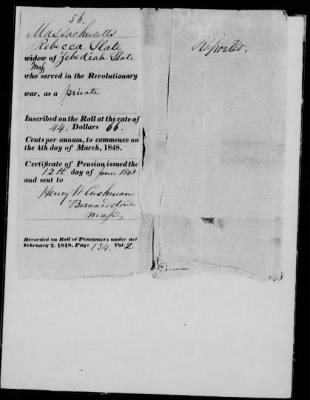 56.
Massachusetts
Rebecca Slate
widow of Zebediah Slate
Mass
who served in the Revolutionary
war, as a private
Inscribed on the Roll at the rate of
44. Dollars 66.
Cents per annum, to commence on
the 4th day of March, 1848.
Certificate of Pension issued the
12th day of June 1848
and sent to
Henry W. Cushman
Bernardston
Mass
Recorded on Roll of Pensioners under act
February 2, 1848. Page 134. Vol. 2